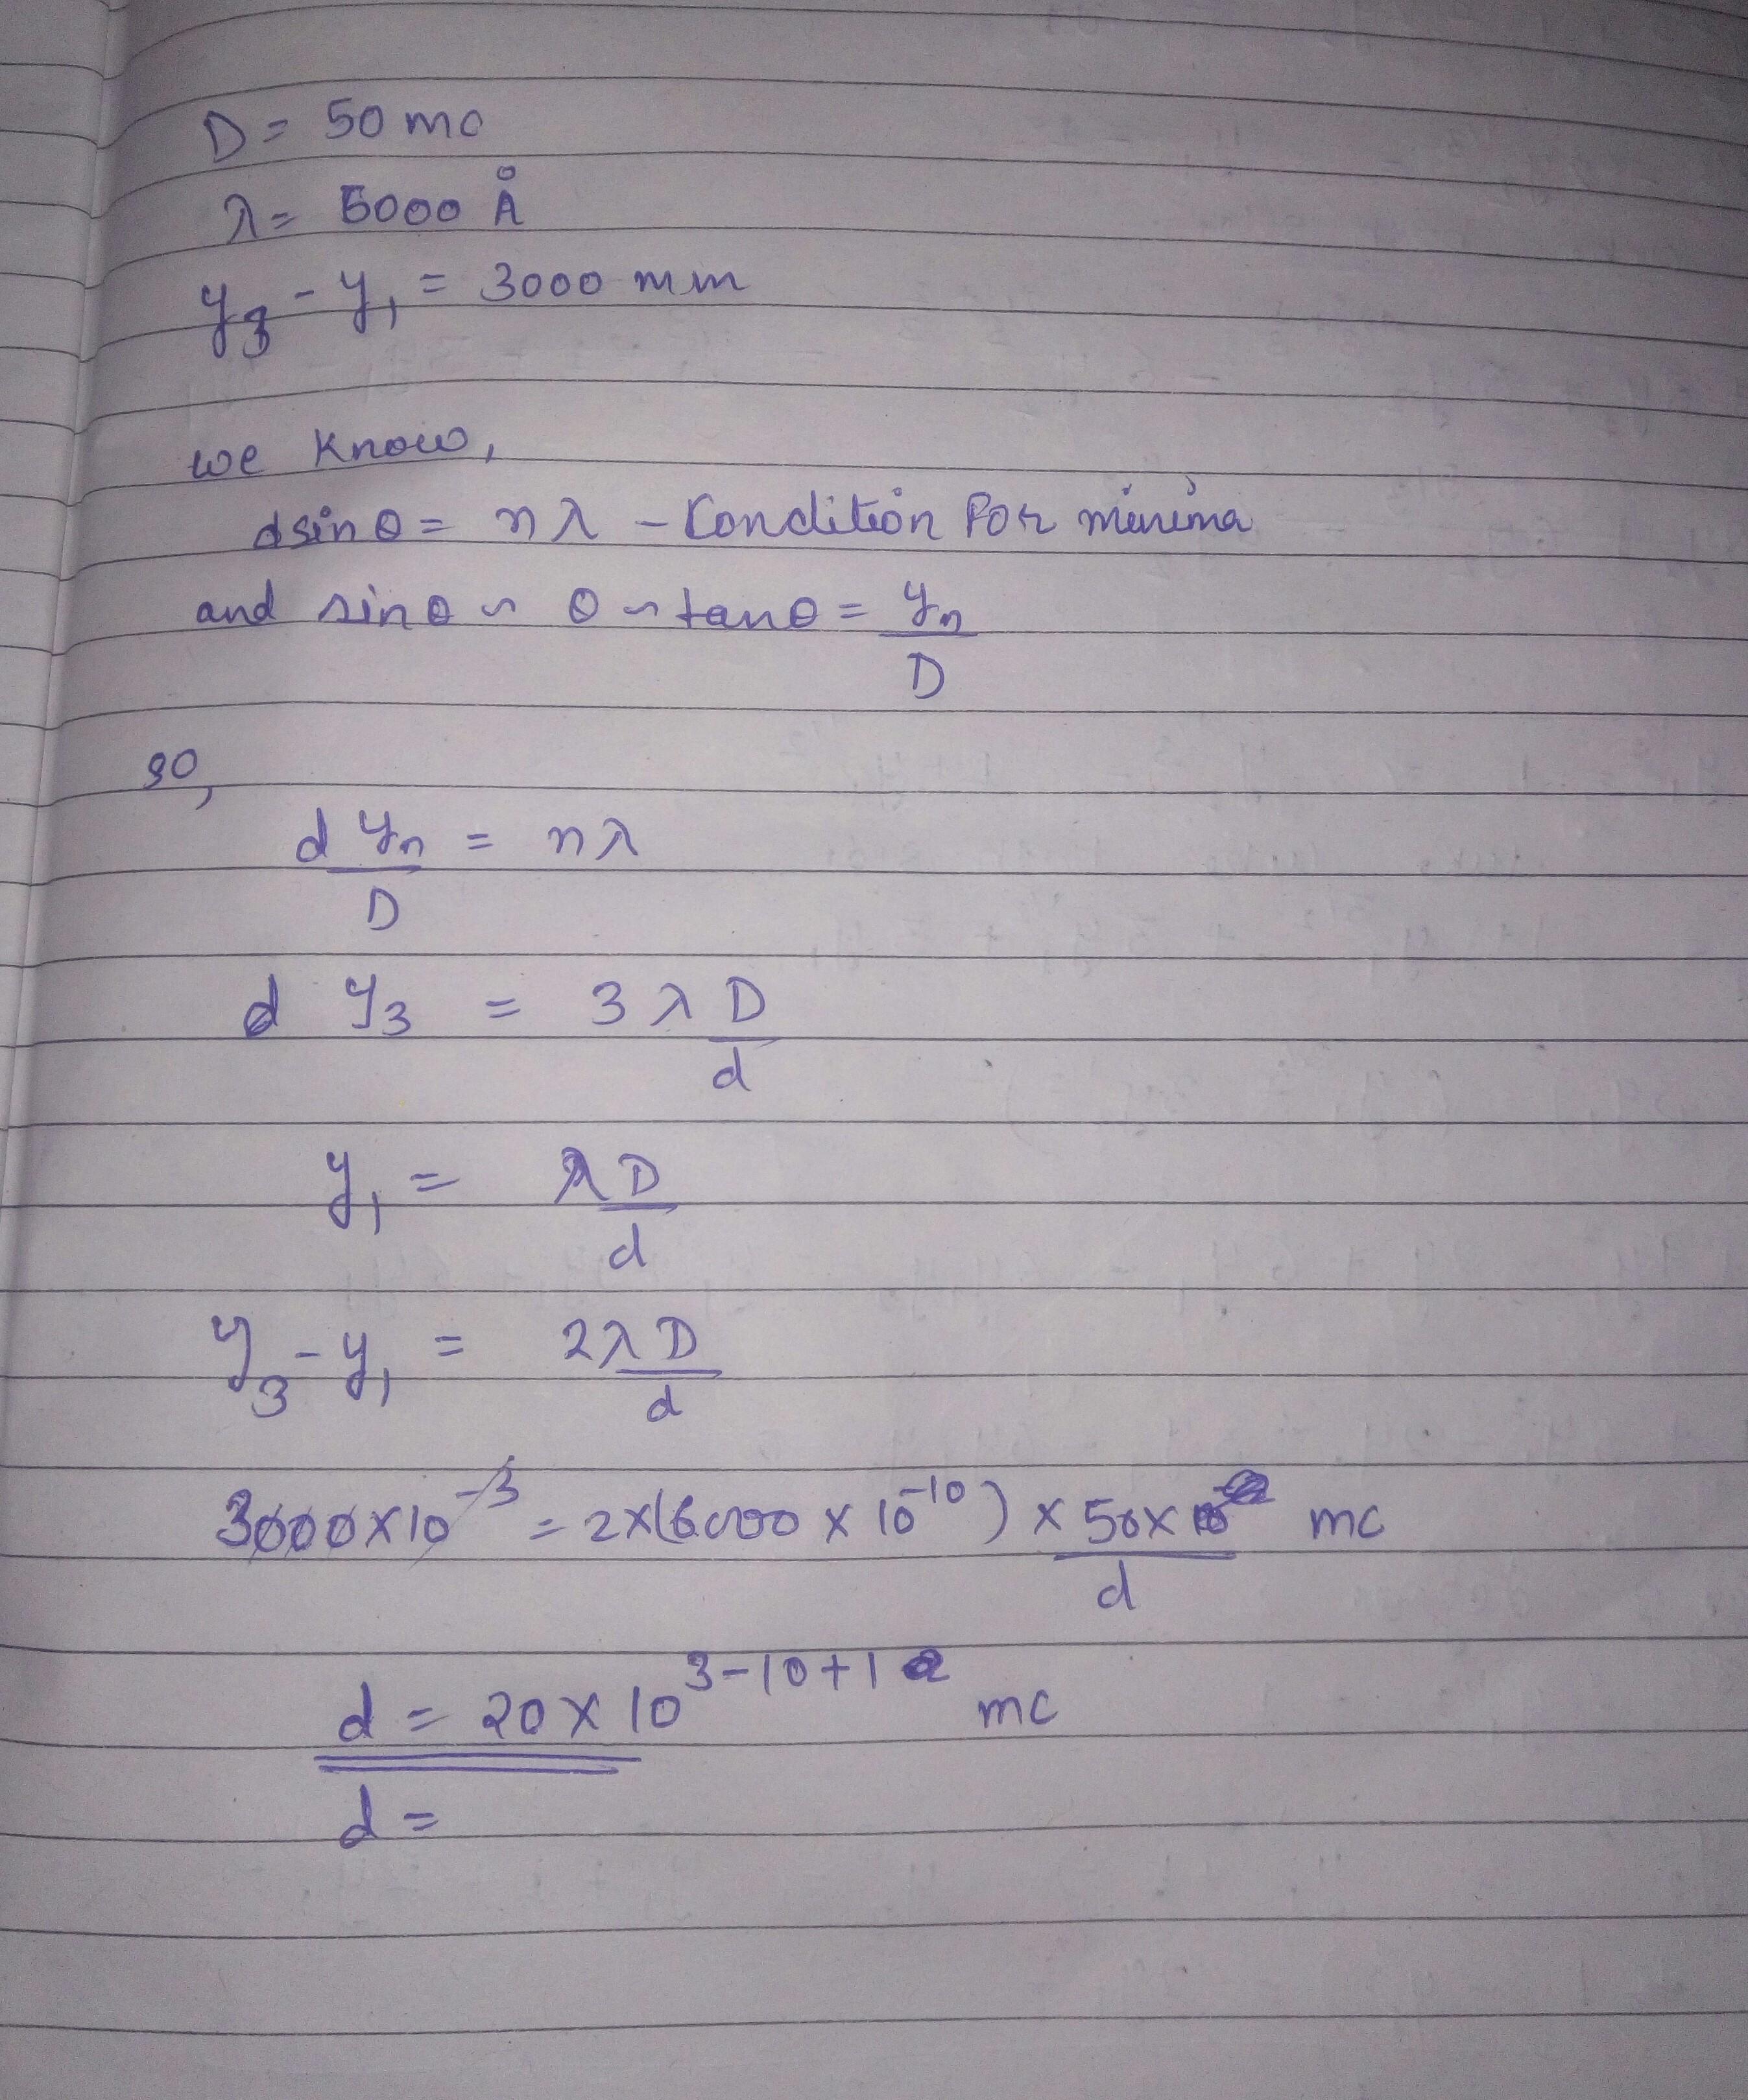 D = 50 mc
λ = 6000 Å
y₃ - y₁ = 3000 mm
we know,
dsinθ = nλ - Condition for minima
and sinθ ~ θ ~ tanθ = yₙ/D
so,
d yₙ/D = nλ
d y₃ = 3λD/d
y₁ = λD/d
y₃ - y₁ = 2λD/d
3000×10⁻³ = 2×(6000 × 10⁻¹⁰) × 50×10/d mc
d = 20 × 10³⁻¹⁰⁺¹ mc
d =